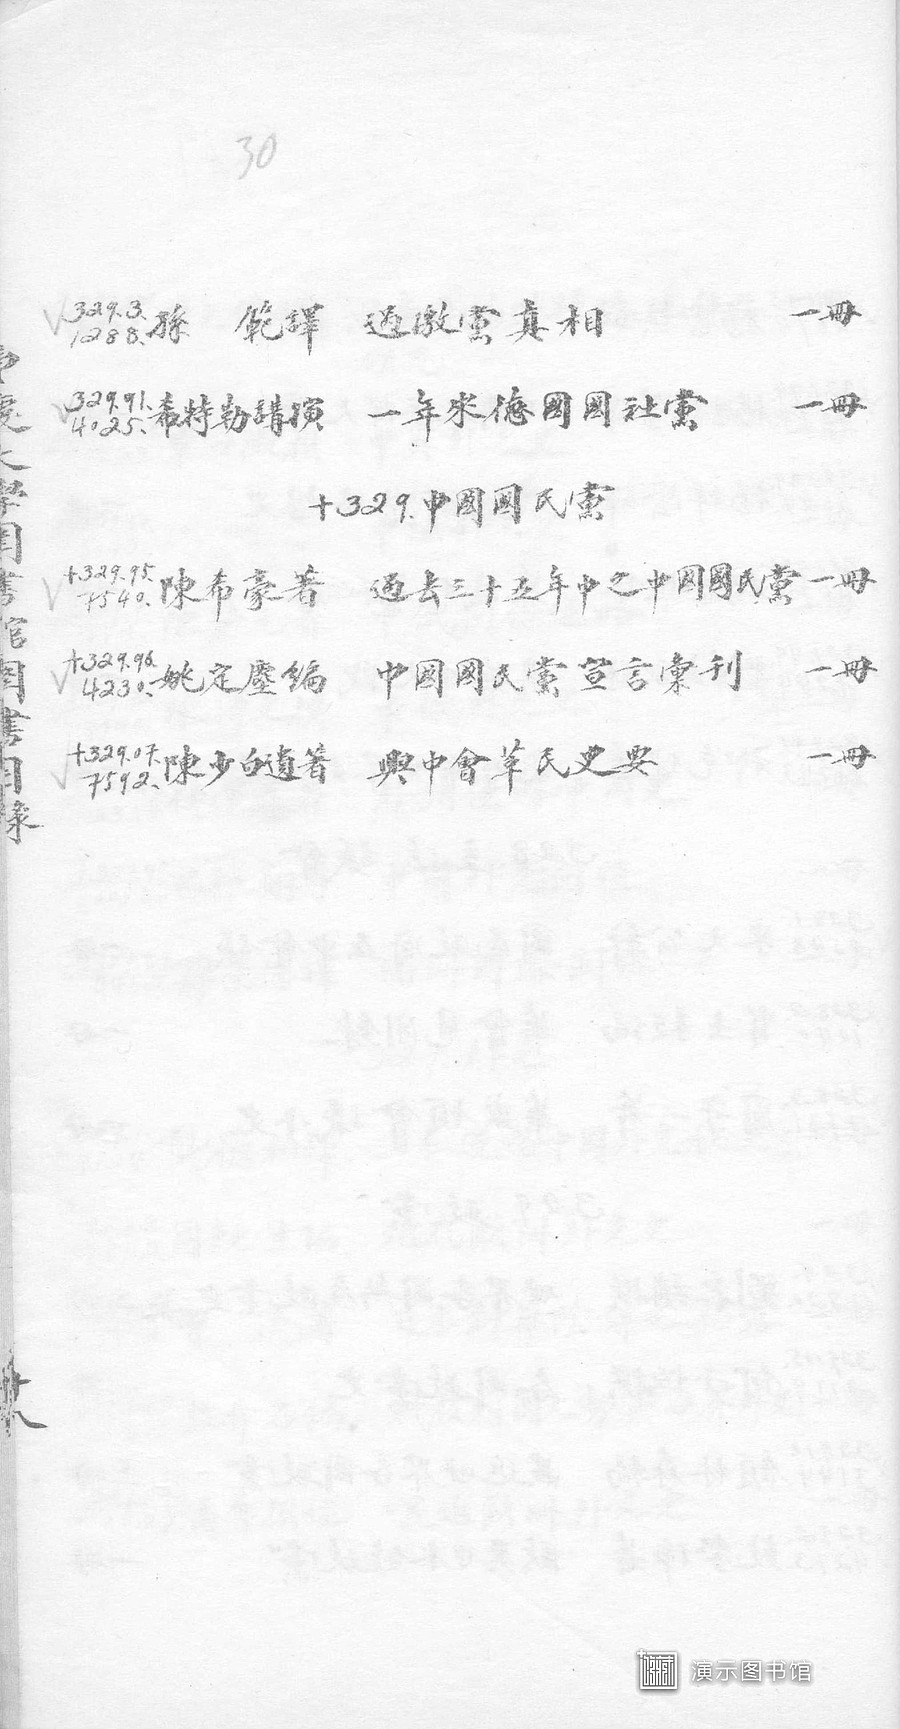 30
329.3. 1288. 孫 範譯 過激黨真相 一冊
329.91. 4025. 希特勒講演 一年來德國國社黨 一冊
+329. 中國國民黨
+329.95. 7540. 陳希豪著 過去三十五年中之中國國民黨 一冊
+329.96. 4230. 姚定塵編 中國國民黨宣言彙刊 一冊
+329.07. 7592. 陳少白遺著 興中會革民史要 一冊
慶大學圖書館圖書目錄
演示图书馆